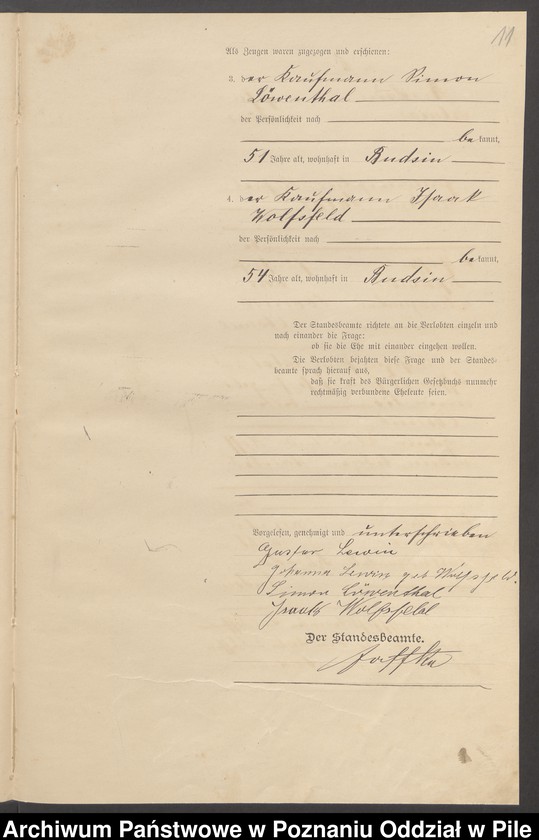 11
Als Zeugen waren zugezogen und erschienen:
3. der Kaufmann Simon
Löwenthal
der Persönlichkeit nach
be kannt,
51 Jahre alt, wohnhaft in Budsin
4. der Kaufmann Isaak
Wolfsfeld
der Persönlichkeit nach
be kannt,
54 Jahre alt, wohnhaft in Budsin
Der Standesbeamte richtete an die Verlobten einzeln und
nach einander die Frage:
ob sie die Ehe mit einander eingehen wollen.
Die Verlobten bejahten diese Frage und der Standes-
beamte sprach hierauf aus,
daß sie kraft des Bürgerlichen Gesetzbuchs nunmehr
rechtmäßig verbundene Eheleute seien.
Vorgelesen, genehmigt und unterschrieben
Gustav Lewin
Johanna Lewin geb Wolfsfeld.
Simon Löwenthal
Isaak Wolfsfeld
Der Standesbeamte.
Archiwum Państwowe w Poznaniu Oddział w Pile